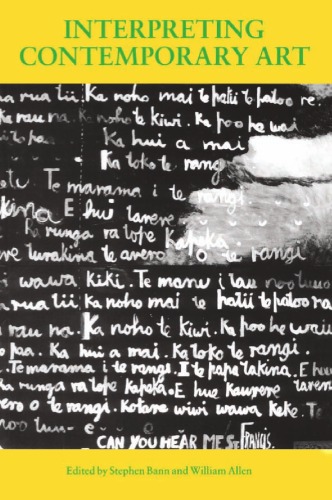 INTERPRETING
CONTEMPORARY ART
a rua tii. Ka noho mai te patii te patoo re.
Ka rau na. Ka noho te kiwi. Ka poo he wai
Ka hui a mai
Ka toko te rangi
Te marama i te rangi
E hui tarere
ka runga ra tope Kapeka
te turakina te avero te rangi
wawa kiki. Te manu i tau
a rua tii Ka noho mai te patii te patoo ra
rau na. Ka noho te kiwi. Ka poo he wai
paa. Ka hui a mai. Ka toko te rangi.
Te marama i te rangi. I te papa takina. E hue
ka runga ra tope Kapeka. E hue Kaurere tarere
o te rangi. Kotare wiwi wawa Keke. Te
CAN YOU HEAR ME St FRANCIS.
Edited by Stephen Bann and William Allen